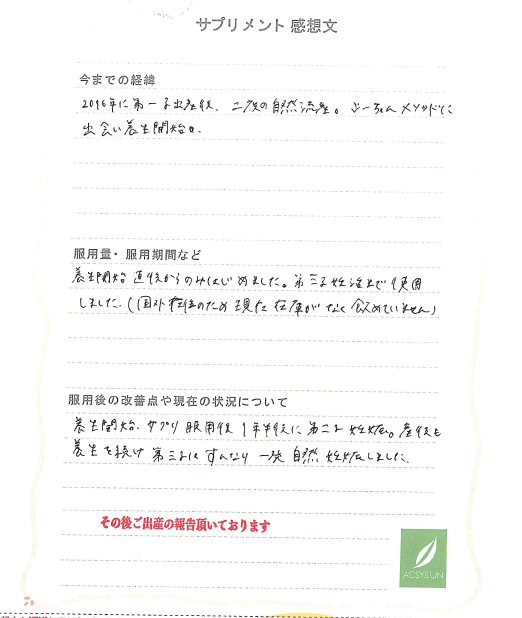 サプリメント 感想文
今までの経緯
2016年に第一子出産後、二度の自然流産。ぶーちゃんメソッドに
出会い養生開始。
服用量・服用期間など
養生開始直後からのみはじめました。第三子妊活まで使用
しました。(国外在住のため現在在庫がなく飲めていません)
服用後の改善点や現在の状況について
養生開始、サプリ服用後1年半後に第二子妊娠。産後も
養生を続け第三子はすんなり一発自然妊娠しました。
その後ご出産の報告頂いております
ACSYSUN